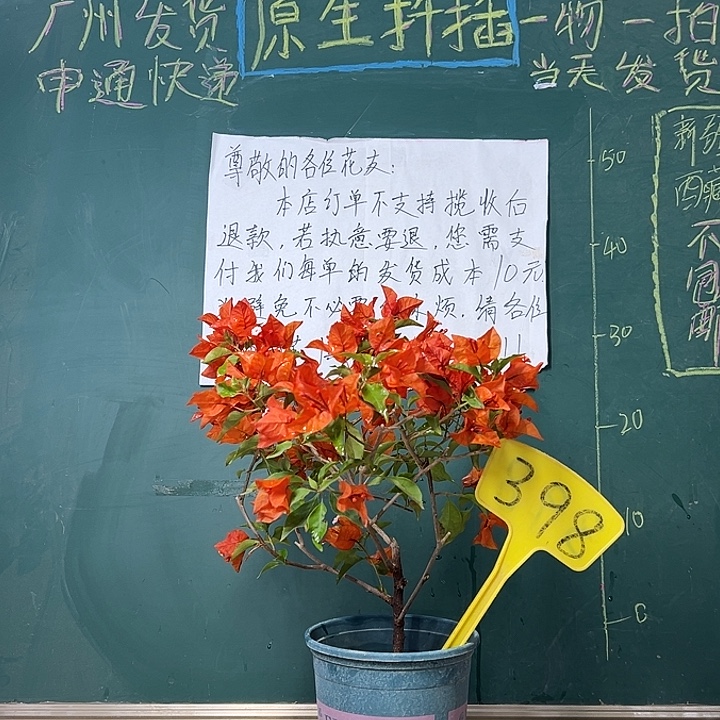 广州发货
原生抖插
一物一拍
申通快递
当天发货
尊敬的各位花友:
本店订单不支持揽收后
退款,若执意要退,您需支
付我们每单的发货成本10元
避免不必要 麻烦.请各位
新疆
西藏
不
同
50
40
30
20
10
0
398